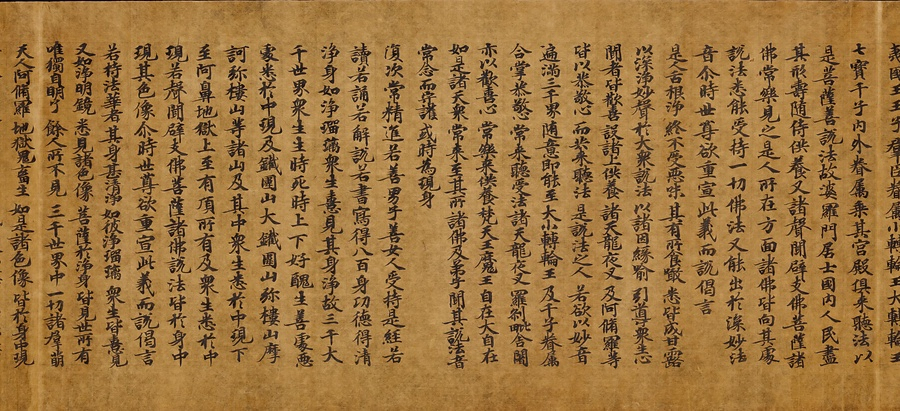 燕國王王子群臣眷属小轉輪王大轉輪王
七寶千子内外眷属乗其宮殿俱来聽法以
是菩薩善說法故婆羅門居士國内人民盡
其形壽随侍供養又諸聲聞辟支佛菩薩諸
佛常樂見之是人所在方面諸佛皆向其處
說法悉能受持一切佛法又能出於深妙法
音尒時世尊欲重宣此義而說偈言
是人舌根淨 終不受惡味 其有所食噉 悉皆成甘露
以深淨妙聲 於大衆說法 以諸因縁喻 引導衆生心
聞者皆歡喜 設諸上供養 諸天龍夜叉 及阿脩羅等
皆以恭敬心 而共来聽法 是說法之人 若欲以妙音
遍滿三千界 随意即能至 大小轉輪王 及千子眷属
合掌恭敬心 常来聽受法 諸天龍夜叉 羅刹毗舍闍
亦以歡喜心 常樂来供養 梵天王魔王 自在大自在
如是諸天衆 常来至其所 諸佛及弟子 聞其說法音
常念而守護 或時為現身
復次常精進若善男子善女人受持是經若
讀若誦若解說若書寫得八百身功德得清
淨身如淨瑠璃衆生憙見其身淨故三千大
千世界衆生生時死時上下好醜生善處惡
處悉於中現及鐵圍山大鐵圍山弥樓山摩
訶弥樓山等諸山及其中衆生悉於中現下
至阿鼻地獄上至有頂所有及衆生悉於中
現若聲聞辟支佛菩薩諸佛說法皆於身中
現其色像尒時世尊欲重宣此義而說偈言
若持法華者 其身甚清淨 如彼淨瑠璃 衆生皆憙見
又如淨明鏡 悉見諸色像 菩薩於淨身 皆見世所有
唯獨自明了 餘人所不見 三千世界中 一切諸群萌
天人阿脩羅 地獄鬼畜生 如是諸色像 皆於身中現